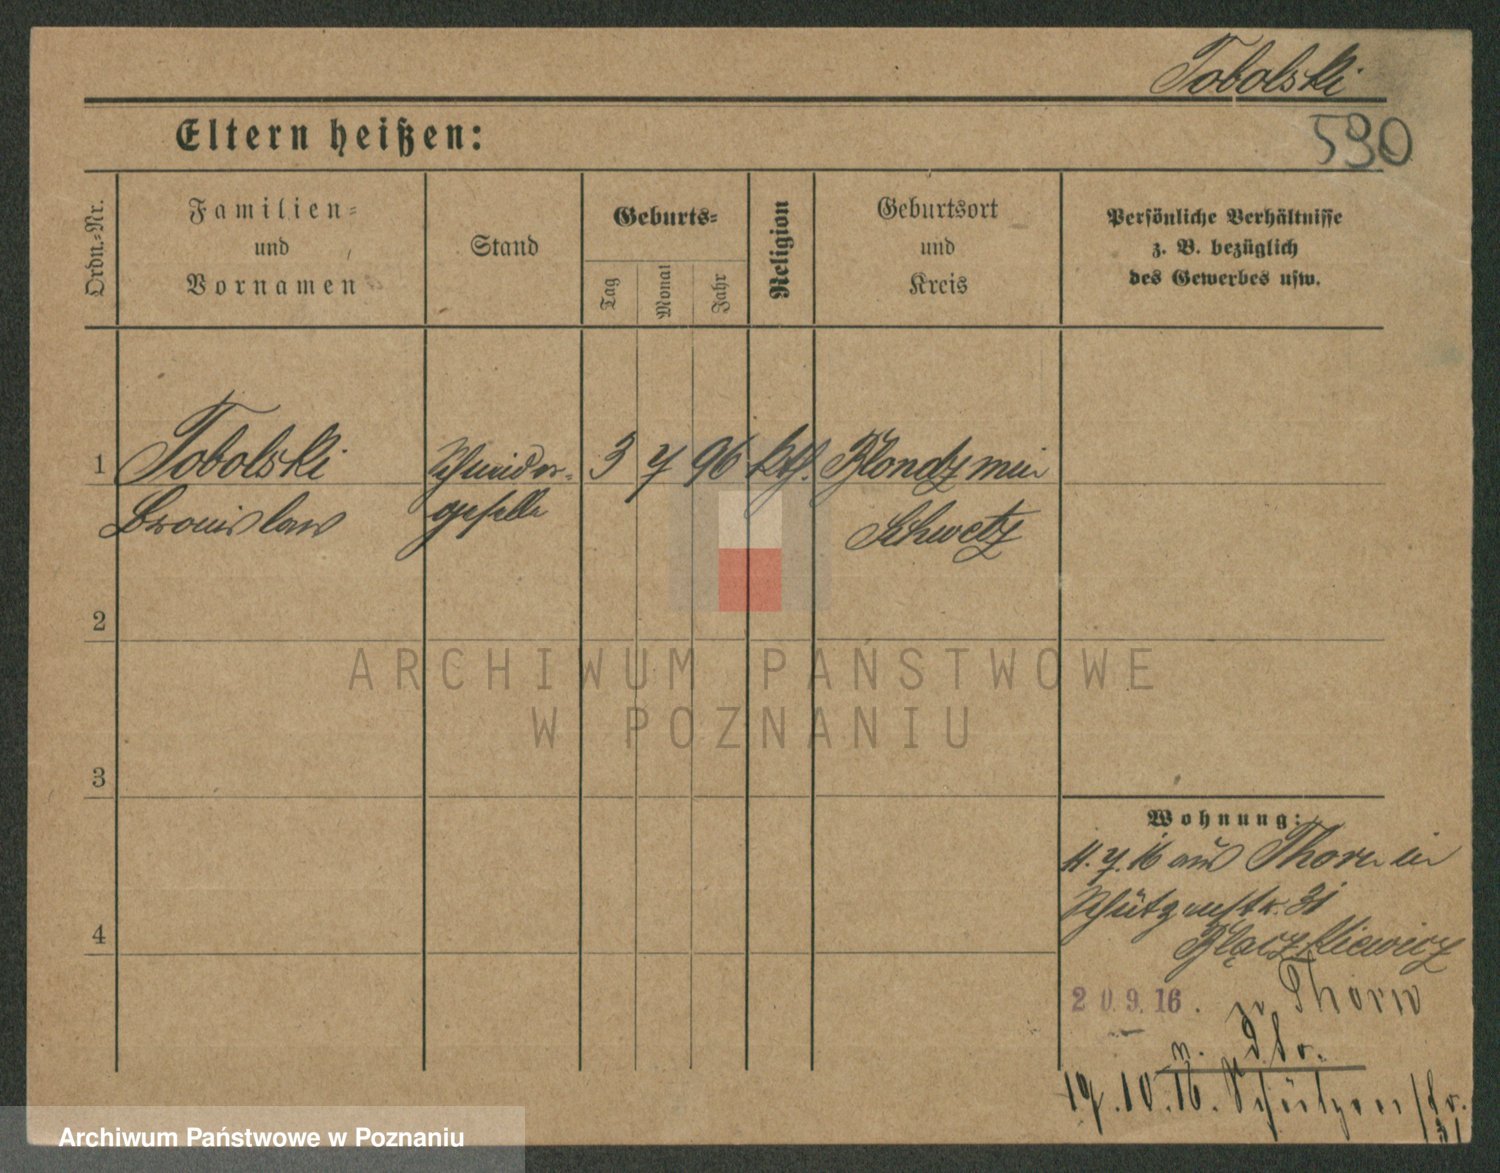 Tobolski
590
Eltern heißen:
Ordn.-Nr.
Familien-
und
Vornamen
Stand
Geburts-
Tag
Monat
Jahr
Religion
Geburtsort
und
Kreis
Persönliche Verhältnisse
z. B. bezüglich
des Gewerbes usw.
1 Tobolski Schneider- 3 7 96 kth. Blondzmin
Bronislaw geselle Schwetz
2
3
4
ARCHIWUM PAŃSTWOWE
W POZNANIU
Wohnung:
11.7.16 aus Thorn in
Schützenstr. 31
20.9.16. Thorn
19.10.16. Schützenstr.
31
Archiwum Państwowe w Poznaniu